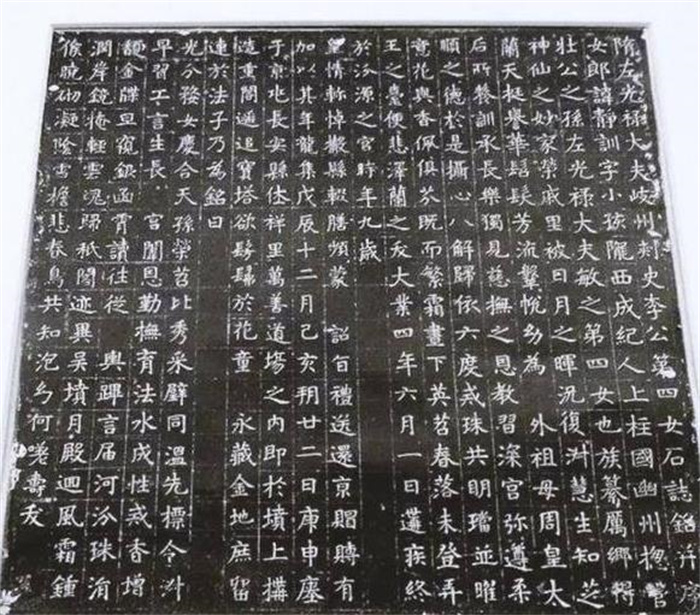 隋左光禄大夫岐州刺史李公第四女石誌銘并序
女郎諱靜訓字小孩隴西成紀人上柱國幽州揔管
壯公之孫左光禄大夫敏之第四女也族纂厲鄉得
神仙之妙家榮戚里被日月之暉況復淑慧生知芝
蘭天挺譽華髫髮芳流鞶帨幼為 外祖母周皇太
后所養訓承長樂獨見慈撫之恩教習深宮弥遵柔
順之德於是攝心八解歸依六度戒珠共明璫並曜
意花與香佩俱芬既而繁霜晝下英苕春落未登弄
玉之臺便悲澤蘭之夭大業四年六月一日遘疾終
於汾源之宮時年九歲
皇情軫悼撤縣輟膳頻蒙 詔旨禮送還京賵賻有
加以其年龍集戊辰十二月己亥朔廿二日庚申瘞
于京兆長安縣休祥里萬善道塲之內即於墳上搆
造重閣遥追寶塔欲髣髴於花童 永藏金地庶留
連於法子乃為銘曰
光分婺女慶合天孫榮苕比秀采璧同溫先標令淑
早習工言生長 宮闈恩勤撫育法水成性戒香增
馥金牒旦窺銀函霄讀往從 輿蹕言届河汾珠涓
潤岸鏡掩輕雲魂歸秘閣迹異吳墳月殿迴風霜鍾
候曉砌凝陰雪檐悲春鳥共知泡幻何嗟壽夭